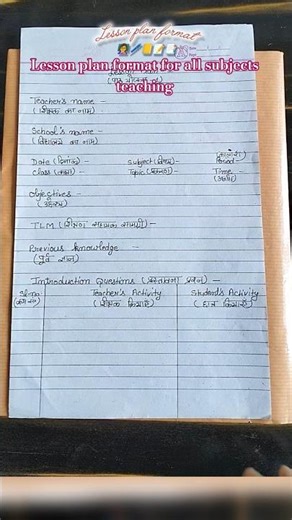 Lesson plan format
Lesson plan format for all subjects
teaching
Teacher's name -
(शिक्षक का नाम)
School's name -
(विद्यालय का नाम)
Date (दिनांक) - Subject (विषय) - Period -
Class (कक्षा) - Topic (प्रकरण) - Time -
(समय)
Objectives -
(उद्देश्य)
TLM (शिक्षण सहायक सामग्री) -
Previous knowledge -
(पूर्व ज्ञान)
Introduction Questions (प्रस्तावना प्रश्न) -
Teacher's Activity Student's Activity
(शिक्षक क्रियाएँ) (छात्र क्रियाएँ)